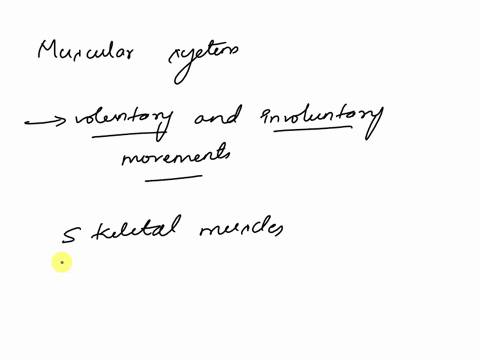 Muscular system
→ voluntary and involuntary
movements
Skeletal muscles